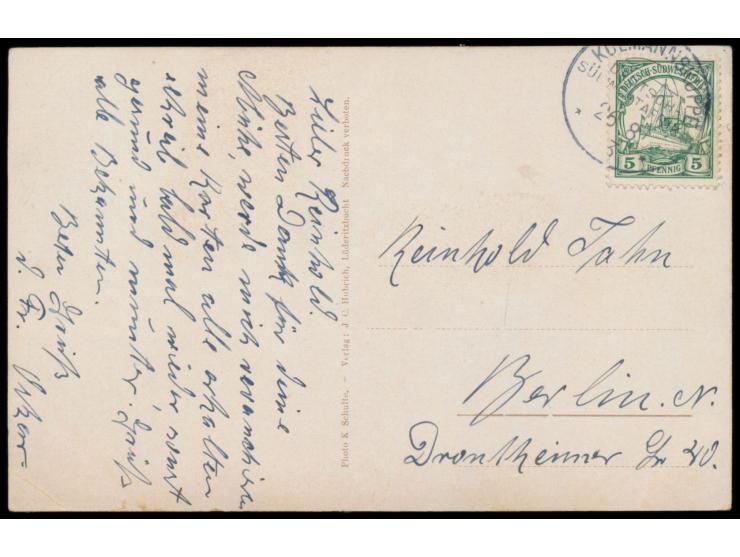 Lieber Reinhold.
Besten Dank für deine
Mühe, werde mich revanchieren
meine Karten alle erhalten
schreib bald mal wieder, sonst
gesund und munter. Grüß
alle Bekannten.
Besten Gruß
d. Fr. Oskar
Photo K Schulte, – Verlag: J. C. Hubrich, Lüderitzbucht Nachdruck verboten.
KOLMANNSKUPPE
DEUTSCH-
SÜDWESTAFRIKA
DEUTSCH-SÜDWESTAFRIKA
5 PFENNIG 5
Reinhold Jahn
Berlin. N.
Drontheimer Str 20.